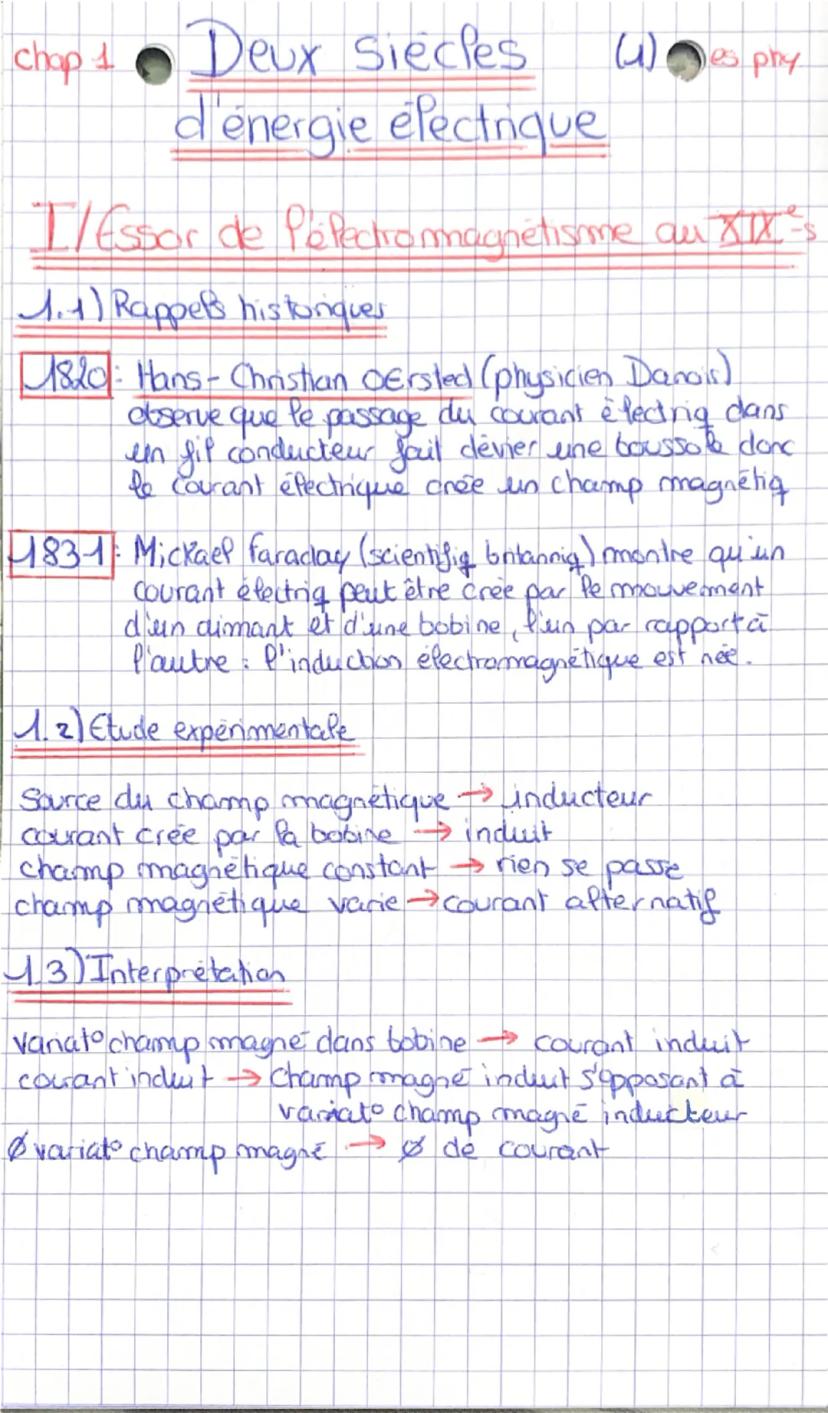 chap 1 Deux siècles (1) es phy
d'énergie électrique
I/Essor de l'électromagnétisme au XIXe-s
1.1) Rappels historiques
1820 : Hans-Christian OErsted (physicien Danois)
observe que le passage du courant électriq dans
un fil conducteur fait dévier une boussole donc
le courant électrique crée un champ magnétiq
1831 : Mickael faraday (scientifiq britanniq) montre qu'un
courant électriq peut être crée par le mouvement
d'un aimant et d'une bobine, l'un par rapport à
l'autre : l'induction électromagnétique est née.
1.2) Etude expérimentale
Source du champ magnétique → inducteur
courant crée par la bobine → induit
champ magnétique constant → rien se passe
champ magnétique varie → courant alternatif
1.3) Interprétation
variat° champ magné dans bobine → courant induit
courant induit → champ magné induit s'opposant à
variat° champ magné inducteur
Ø variat° champ magné → Ø de courant